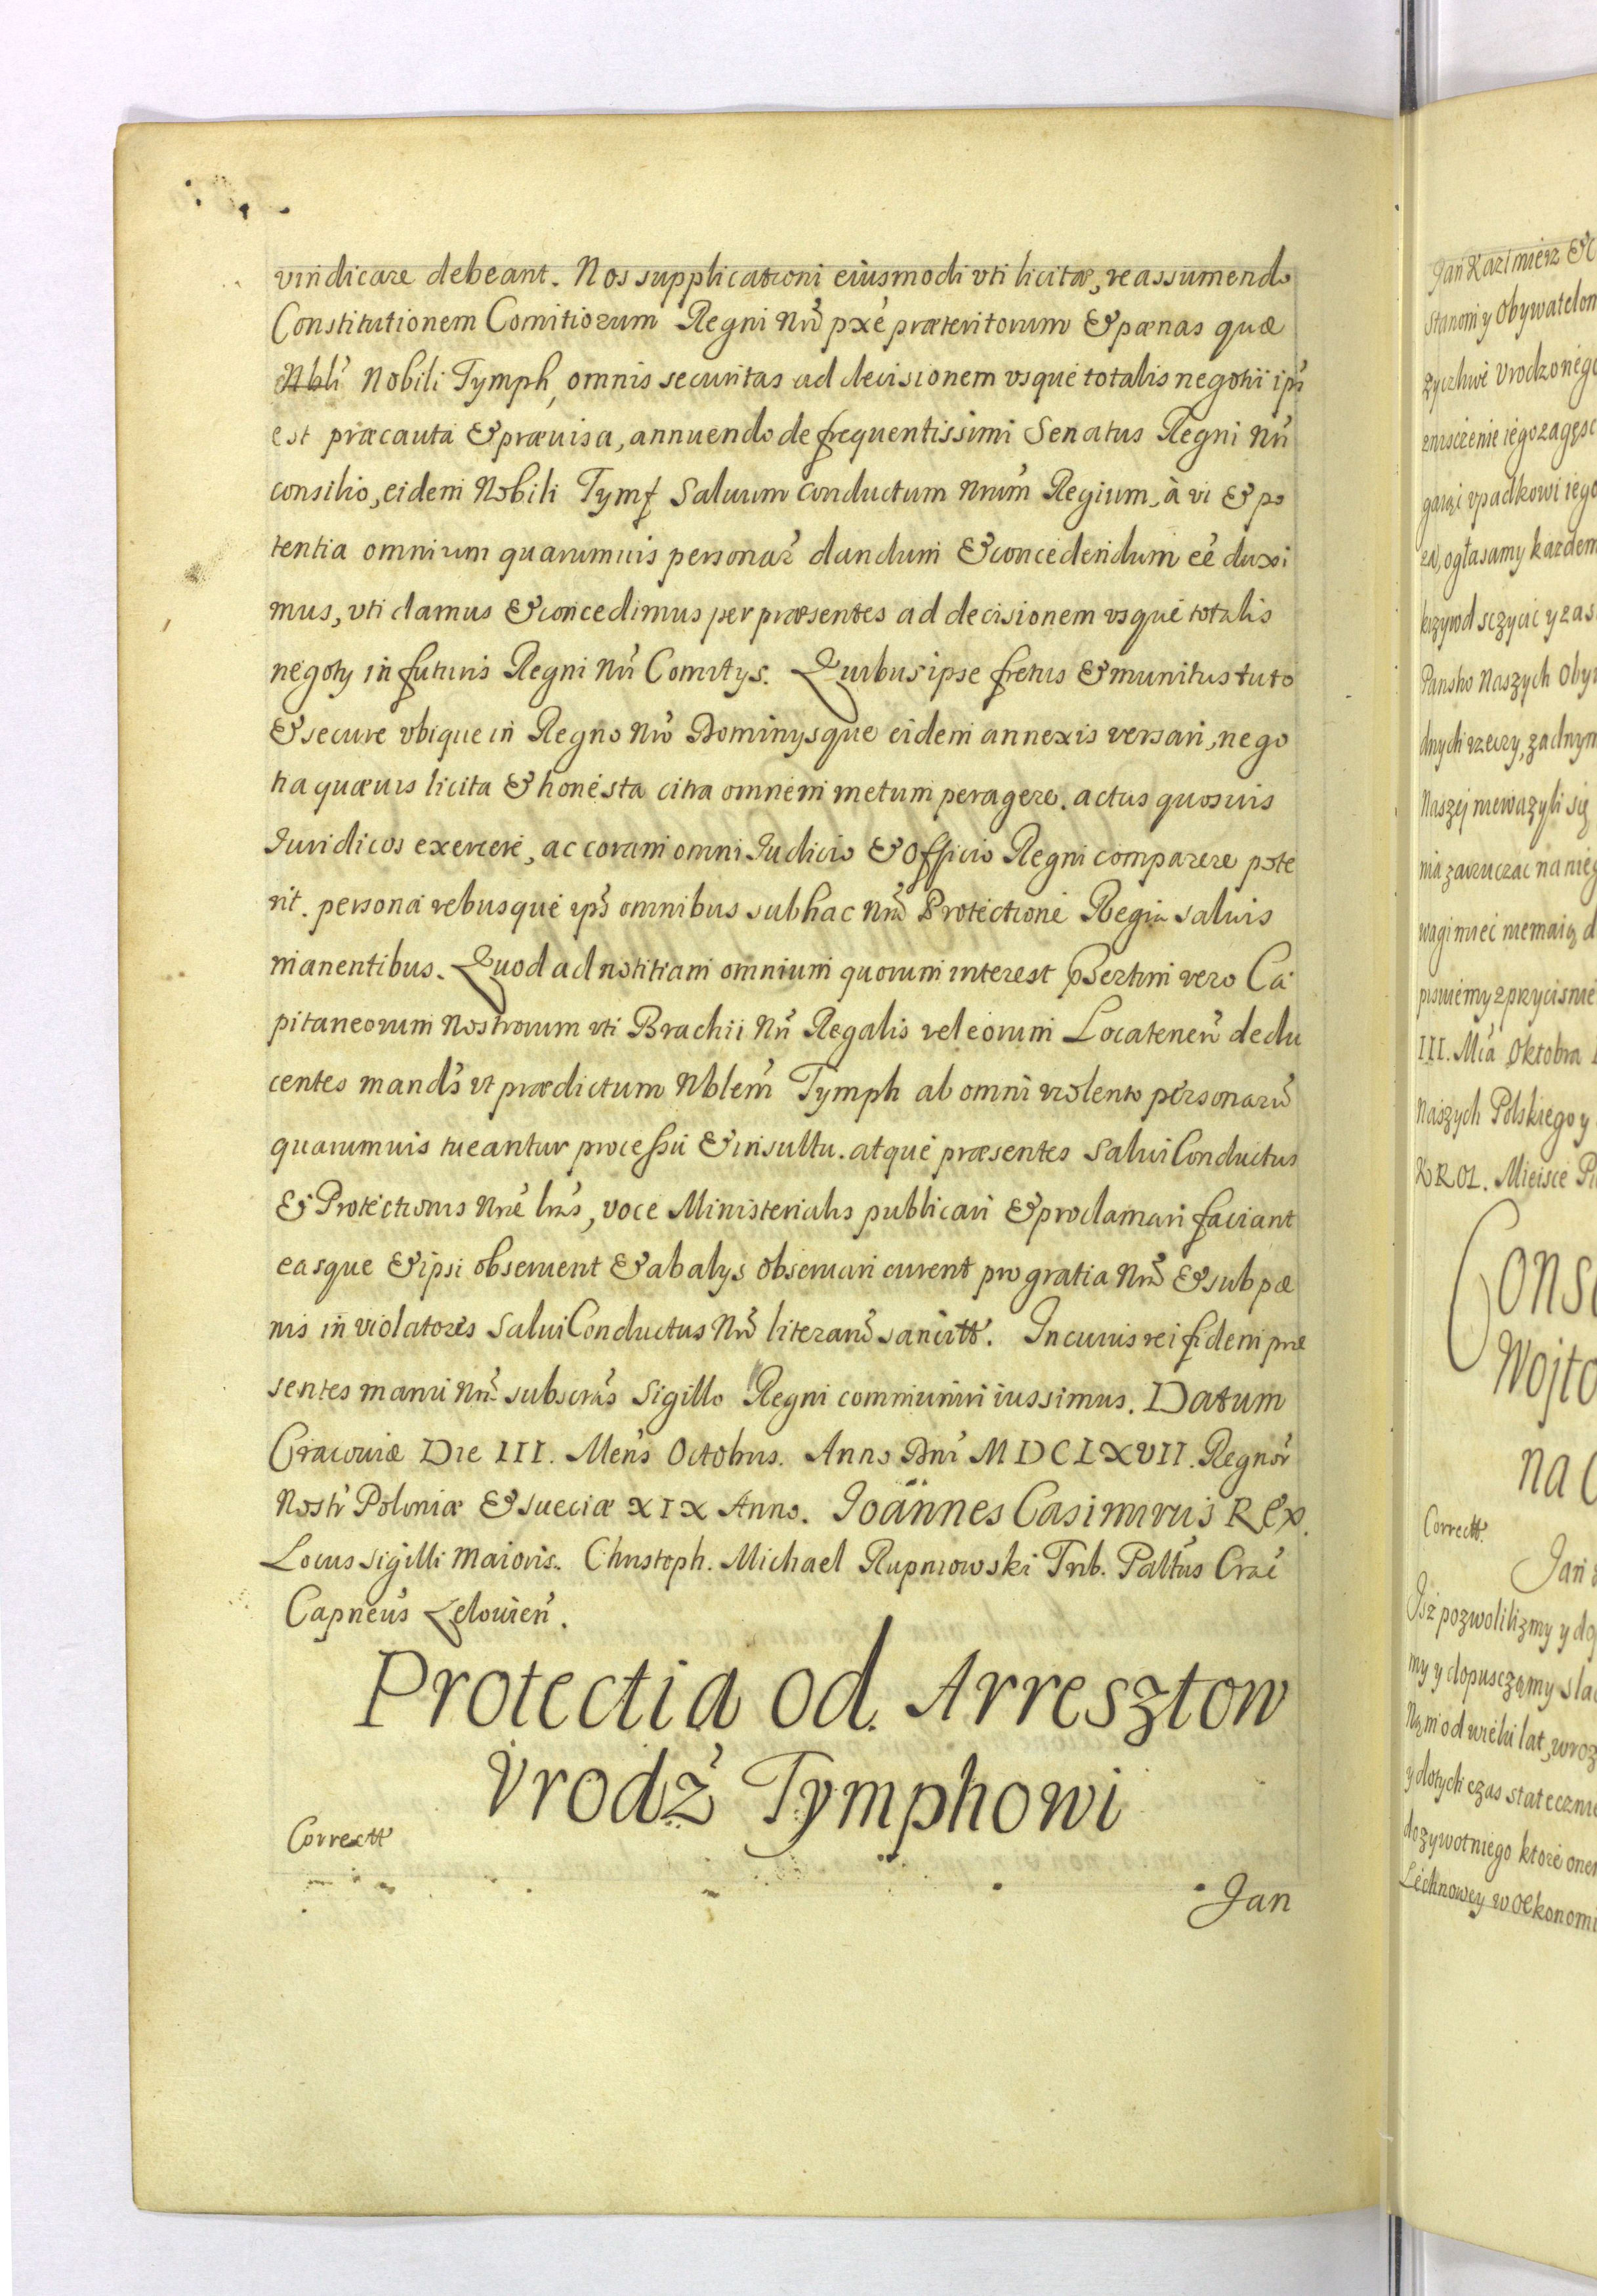 vindicare debeant. Nos supplicationi eiusmodi vti licitæ, reassumendo
Constitutionem Comitiorum Regni Nrõ pxé præteritorum & pænas quæ
Nbli Nobili Tymph, omnis securitas ad decisionem vsque totalis negotii ips
est præcauta & præuisa, annuendo de frequentissimi Senatus Regni Nri
consilio, eidem Nobili Tymf Saluum conductum Nrum Regium, à vi & po
tentia omnium quarumuis personar̃ dandum & concedendum eé duxi
mus, vti damus & concedimus per præsentes ad decisionem vsque totalis
negoty in futuris Regni Nri Comitys. Quibus ipse fretus & munitus tuto
& secure vbique in Regno Nrõ Dominysque eidem annexis versari, nego
tia quæuis licita & honesta citra omnem metum peragere. actus quosuis
Juridicos exercere, ac coram omni Judicio & Officio Regni comparere pote
rit. persona rebusque ips omnibus sub hac Nrã Protectione Regia saluis
manentibus. Quod ad notitiam omnium quorum interest psertim vero Ca
pitaneorum Nostrorum vti Brachii Nri Regalis vel eorum Locateneñ dedu
centes mands vt prædictum Nblem Tymph ab omni violento personarũ
quarumuis tueantur processu & insultu. atque præsentes Salui Conductus
& Protectionis Nré lrás, voce Ministerialis publicari & proclamari faciant
easque & ipsi obseruent & ab alys obseruari curent pro gratia Nrã & sub pæ
nis in violatores Salui Conductus Nrõ literarũ sancitt. In cuius rei fidem præ
sentes manu Nrã subscrás Sigillo Regni communiri iussimus. Datum
Cracouiæ Die III. Mens Octobris. Anno Dni MDCLXVII. Regnor̃
Nostr̃ Poloniæ & Sueciæ XIX Anno. Joännes Casimirus REx.
Locus sigilli Maioris. Christoph. Michael Rupniowski Trib. Paltús Craé
Capneús Lelouień.
Protectia od. Arresztow
Vrodź Tymphowi
Correctt
Jan
Jan Kazimierz &c
Stanom y Obywatelom
zyczliwe Vrodzonego
zniszczenie iego
gaiąi vpadkowi iego
ogłasamy kazdem
krzywd sczycic y zas
Panstw Naszych Oby
dnych rzeczy, zadnym
Naszej niewazyli się
nia zarzucac na nieg
wagi miec niemaią d
pismemy z przycisnie
III. Mca Oktobra
Naszych Polskiego y
KROL. Mieisce Pi
Cons
Wojto
na
Correctt.
Jan
Isz pozwolilizmy y do
my y dopusczamy sla
Nam od wielu lat, wroz
y dotych czas statecznie
dozywotniego ktore one
Lechnowey w Oekonomi